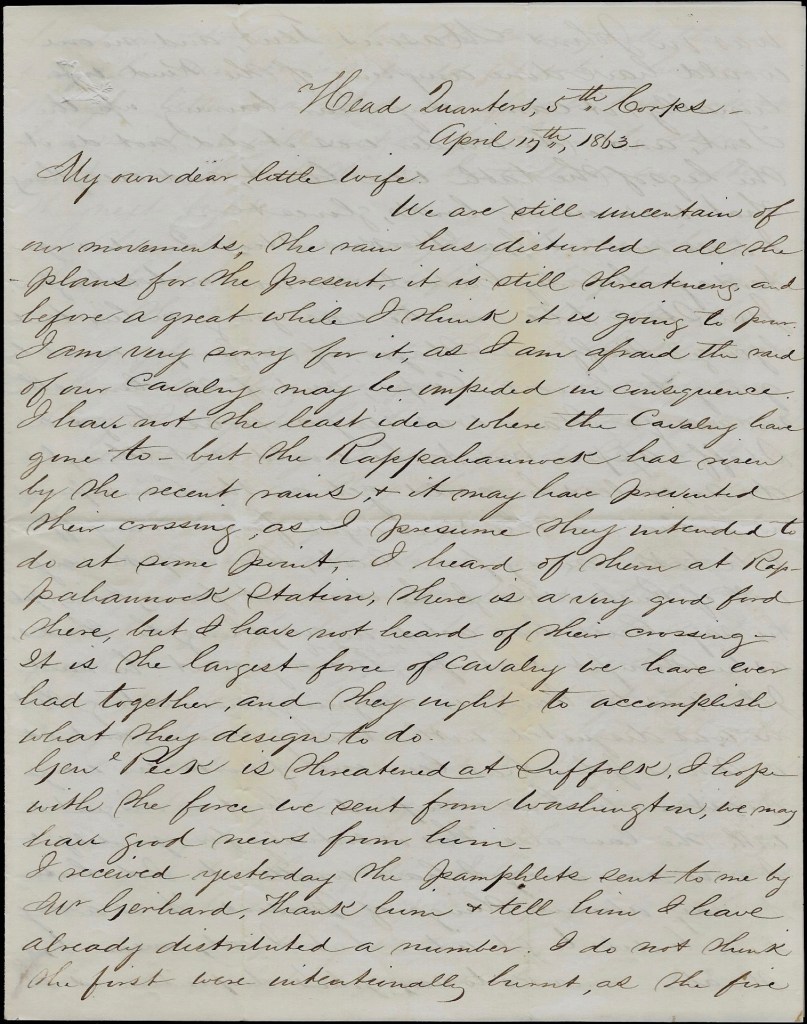 Head Quarters, 5th Corps -
April 17th, 1863 -
My own dear little wife.
We are still uncertain of
our movements, the rain has disturbed all the
plans for the present, it is still threatening and
before a great while I think it is going to pour.
I am very sorry for it, as I am afraid the raid
of our Cavalry may be impeded in consequence.
I have not the least idea where the Cavalry have
gone to - but the Rappahannock has risen
by the recent rains, & it may have prevented
their crossing, as I presume they intended to
do at some point, I heard of them at Rap-
pahannock Station, there is a very good ford
there, but I have not heard of their crossing -
It is the largest force of cavalry we have ever
had together, and they ought to accomplish
what they design to do.
Genl Peck is threatened at Suffolk, I hope
with the force we sent from Washington, we may
have good news from him -
I received yesterday the pamphlets sent to me by
Mr Gerhard, Thank him & tell him I have
already distributed a number. I do not think
the first were intentionally burnt, as the fire